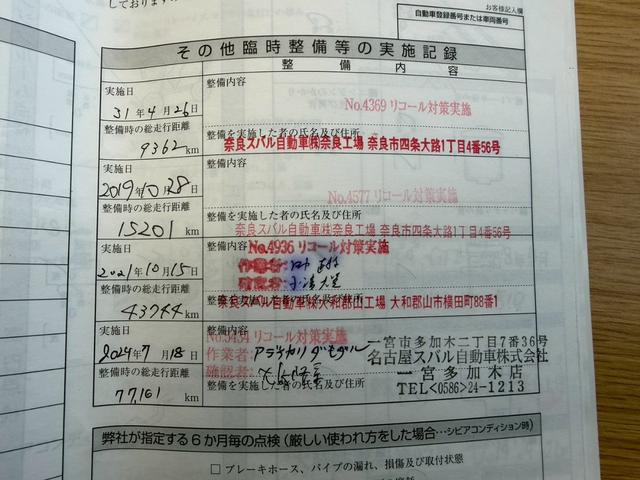 お客様記入欄
自動車登録番号または車両番号
その他臨時整備等の実施記録
整備内容
実施日
整備内容
31年4月26日
No.4369 リコール対策実施
整備時の総走行距離
整備を実施した者の氏名及び住所
9362km
奈良スバル自動車㈱奈良工場 奈良市四条大路1丁目4番56号
実施日
整備内容
2019年10月28日
No.4577 リコール対策実施
整備時の総走行距離
整備を実施した者の氏名及び住所
15201km
奈良スバル自動車㈱奈良工場 奈良市四条大路1丁目4番56号
実施日
整備内容
No.4936 リコール対策実施
2021年10月15日
作業者:
確認者:
整備時の総走行距離
整備を実施した者の氏名及び住所
43744km
奈良スバル自動車㈱大和郡山工場 大和郡山市横田町88番1
実施日
整備内容
No.5434 リコール対策実施
2024年7月18日
作業者:
確認者:
一宮市多加木二丁目7番36号
名古屋スバル自動車株式会社
一宮多加木店
TEL<0586>24-1213
整備時の総走行距離
整備を実施した者の氏名及び住所
77,161km
弊社が指定する6か月毎の点検(厳しい使われ方をした場合…シビアコンディション時)
□ ブレーキホース、パイプの漏れ、損傷及び取付状態